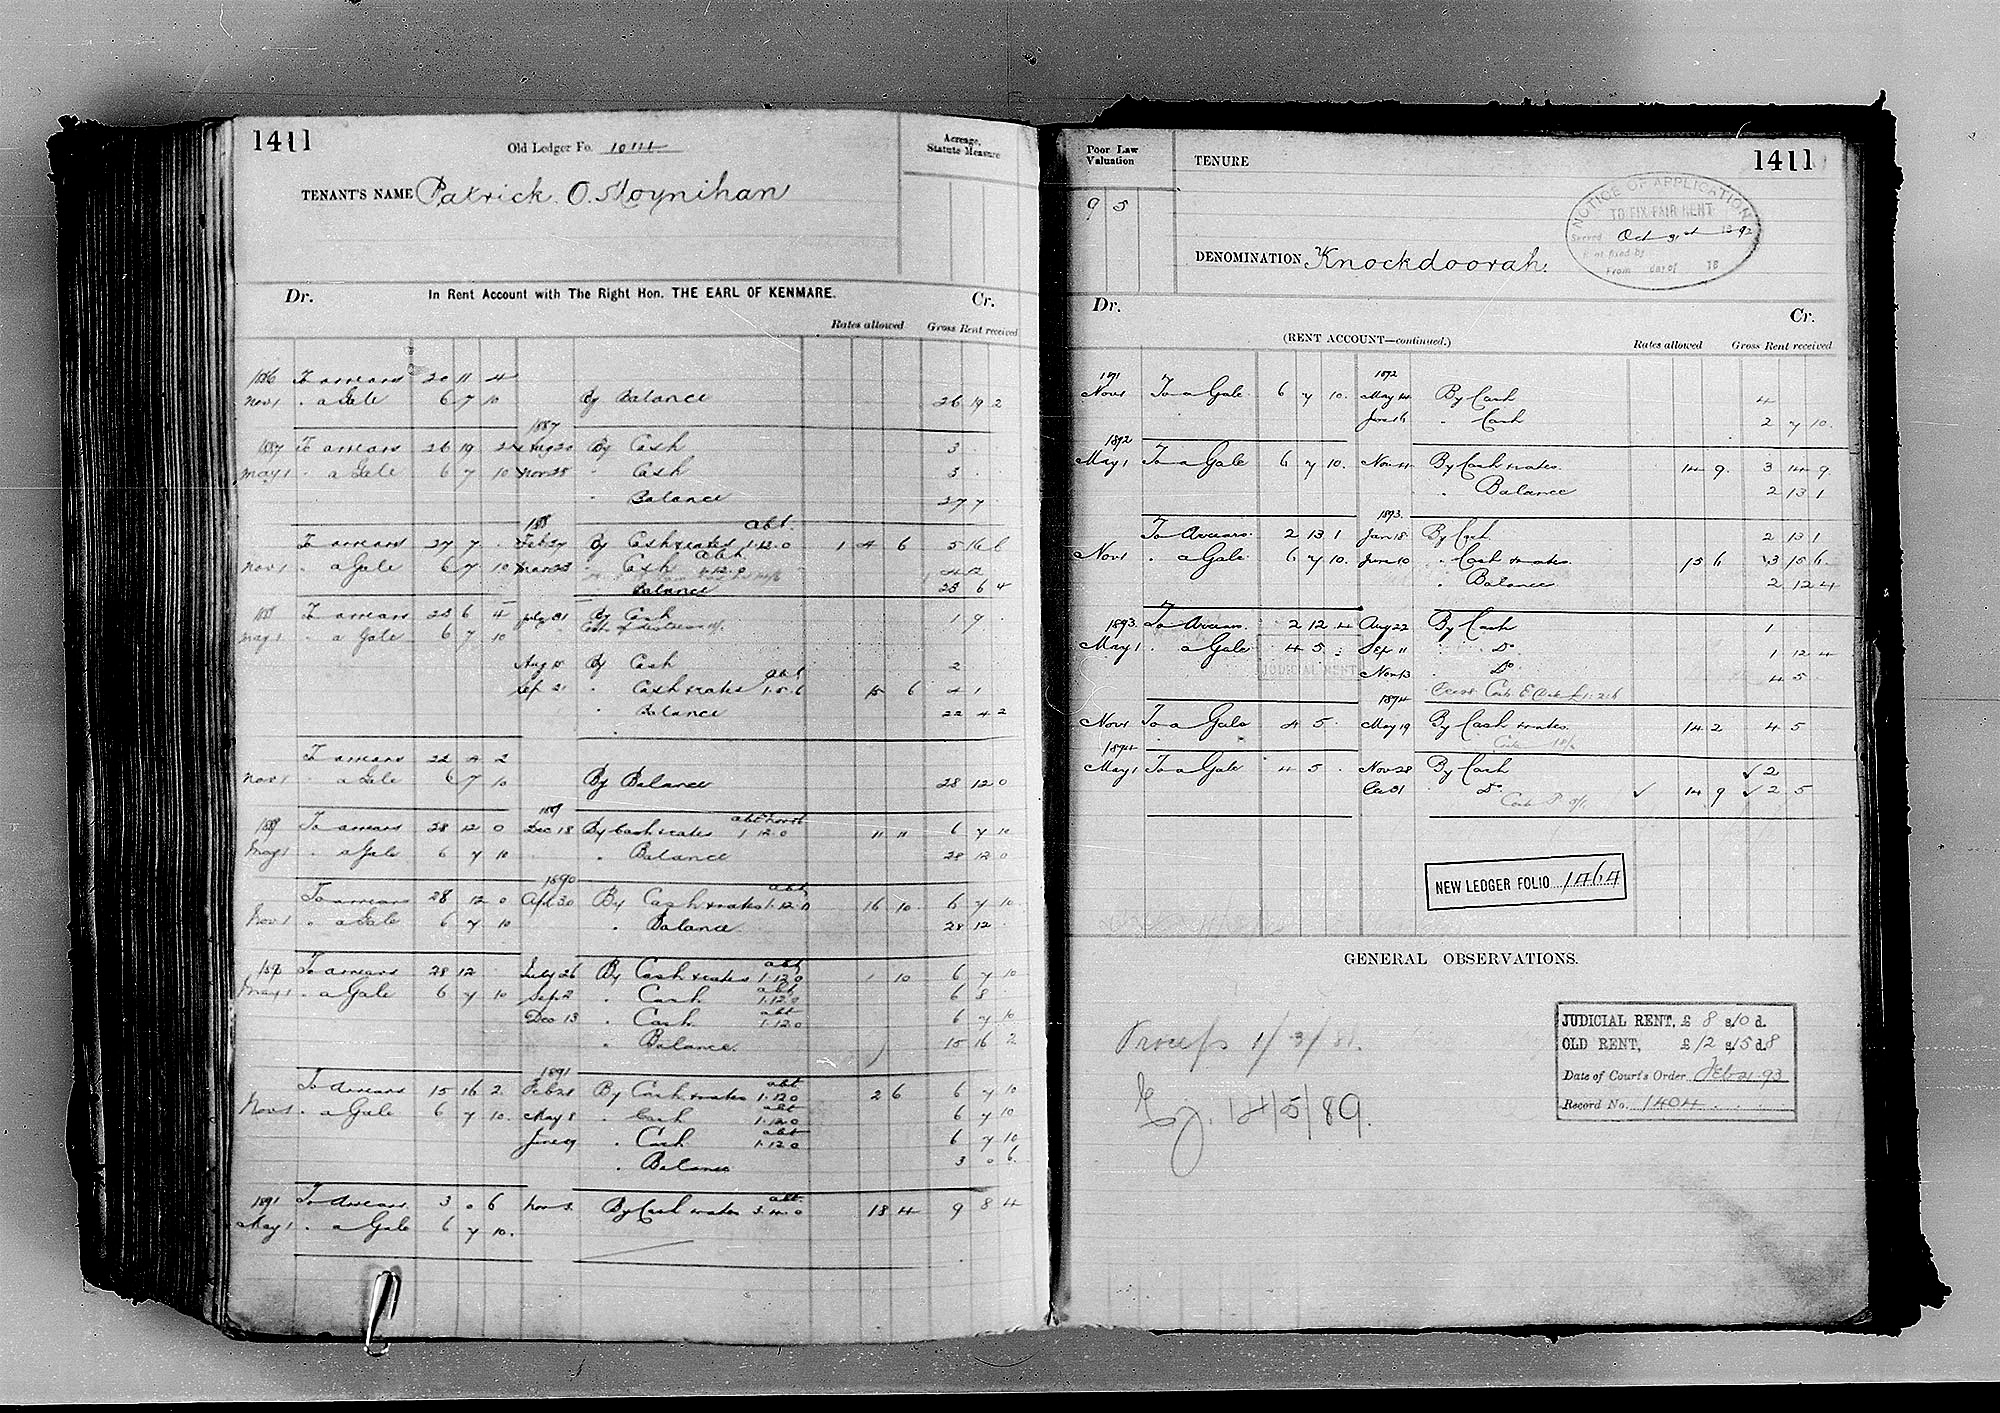 1411
Old Ledger Fo. 1011
Acreage, Statute Measure
TENANT'S NAME Patrick O. Moynihan
Dr. In Rent Account with The Right Hon. THE EARL OF KENMARE. Cr.
Rates allowed Gross Rent received
1886 To arrears 20 11 4
Nov 1 " a Gale 6 7 10 By Balance 26 19 2
1887
1887 To arrears 26 19 2 Aug 20 By Cash 3
May 1 " a Gale 6 7 10 Nov 28 " Cash 3
" Balance 27 7
1888 abt
To arrears 27 7 Feb 27 By Cash & rates 1.12.0 1 4 6 5 16 6
abt
Nov 1 " a Gale 6 7 10 " Cash 1.12.0 4 2
Balance 23 6 4
1888 To arrears 23 6 4 July 31 By Cash 1 9
May 1 " a Gale 6 7 10
Aug 18 By Cash 2
abt
Sep 21 " Cash & rates 1.5.6 15 6 4 1
" Balance 22 4 2
To arrears 22 4 2
Nov 1 " a Gale 6 7 10 By Balance 28 12 0
1889
1889 To arrears 28 12 0 Dec 18 By Cash & rates 1.12.0 11 11 6 7 10
May 1 " a Gale 6 7 10 " Balance 28 12 0
1890 abt
To arrears 28 12 0 Apl 30 By Cash & rates 1.12.0 16 10 6 7 10
Nov 1 " a Gale 6 7 10 " Balance 28 12
abt
1890 To arrears 28 12 July 26 By Cash & rates 1.12.0 1 10 6 7 10
abt
May 1 " a Gale 6 7 10 Sep 2 " Cash 1.12.0 6 8
abt
Dec 13 " Cash 1.12.0 6 7 10
" Balance 15 16 2
1891 abt
To arrears 15 16 2 Feb 21 By Cash & rates 1.12.0 2 6 6 7 10
abt
Nov 1 " a Gale 6 7 10 May 8 " Cash 1.12.0 6 7 10
abt
June 19 " Cash 1.12.0 6 7 10
" Balance 3 0 6
abt
1891 To arrears 3 0 6 Nov 3 By Cash & rates 3.4.0 18 4 9 8 4
May 1 " a Gale 6 7 10
Poor Law Valuation
TENURE
1411
9 5
NOTICE OF APPLICATION
TO FIX FAIR RENT
Served Oct 31st 1892
Rent fixed by
From day of 18
DENOMINATION Knockdoorah.
Dr. Cr.
(RENT ACCOUNT—continued.) Rates allowed Gross Rent received
1891 1892
Nov 1 To a Gale 6 7 10 May 14 By Cash 4
June 16 " Cash 2 7 10
1892
May 1 To a Gale 6 7 10 Nov 4 By Cash & rates 14 9 3 14 9
" Balance 2 13 1
1893
To Arrears 2 13 1 Jan 18 By Cash 2 13 1
Nov 1 " a Gale 6 7 10 June 10 " Cash & rates 15 6 3 15 6
" Balance 2 12 4
1893 To Arrears 2 12 4 Aug 22 By Cash 1
May 1 " a Gale 4 5 Sep 11 " Do 1 12 4
JUDICIAL RENT
Nov 13 " Do 4 5
1894
Nov 1 To a Gale 4 5 May 19 By Cash & rates 14 2 4 5
1894
May 1 To a Gale 4 5 Nov 28 By Cash ✓ 2
Dec 31 " Do ✓ 14 9 ✓ 2 5
NEW LEDGER FOLIO 1464
GENERAL OBSERVATIONS.
Process 1/3/81.
Ej. 14/5/89.
JUDICIAL RENT, £ 8 s. 10 d.
OLD RENT, £ 12 s. 15 d. 8
Date of Court's Order Feb 21. 93
Record No. 1404